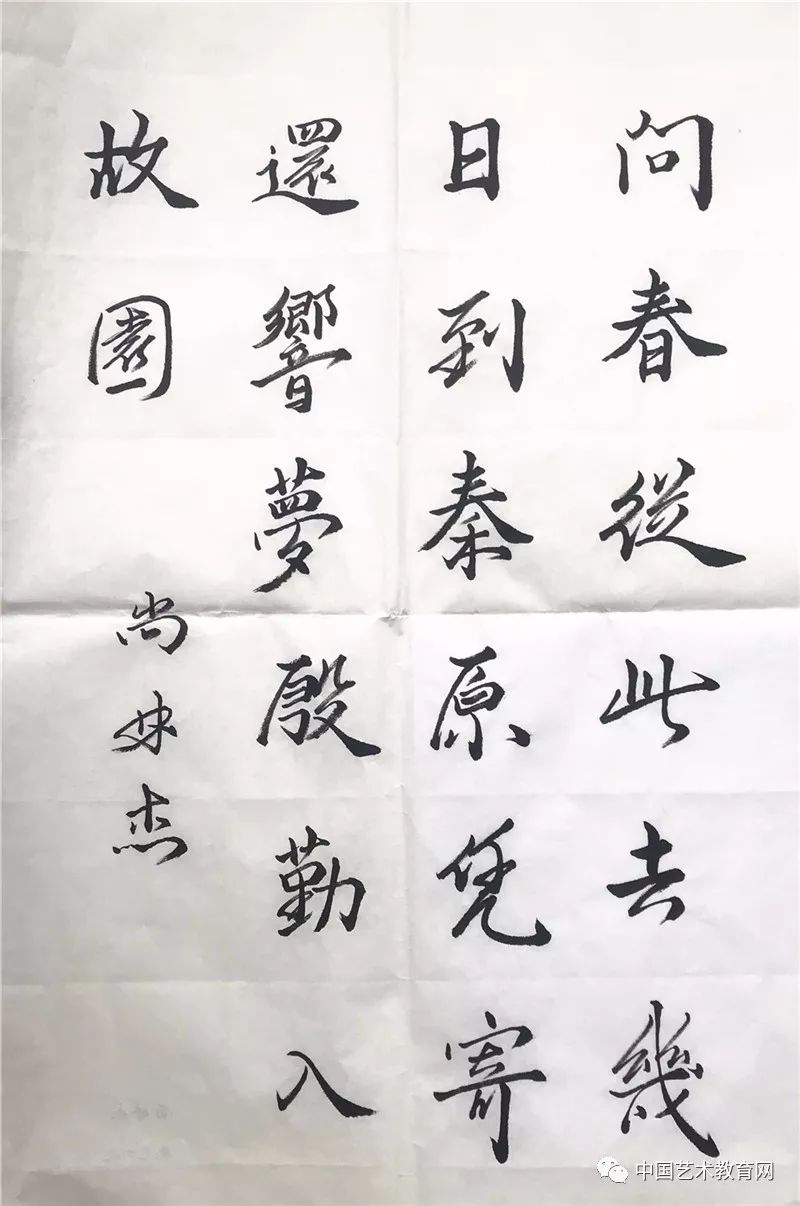 问春從此去幾
日到秦原凭寄
還響夢殷勤入
故園
尚 杰
中国艺术教育网